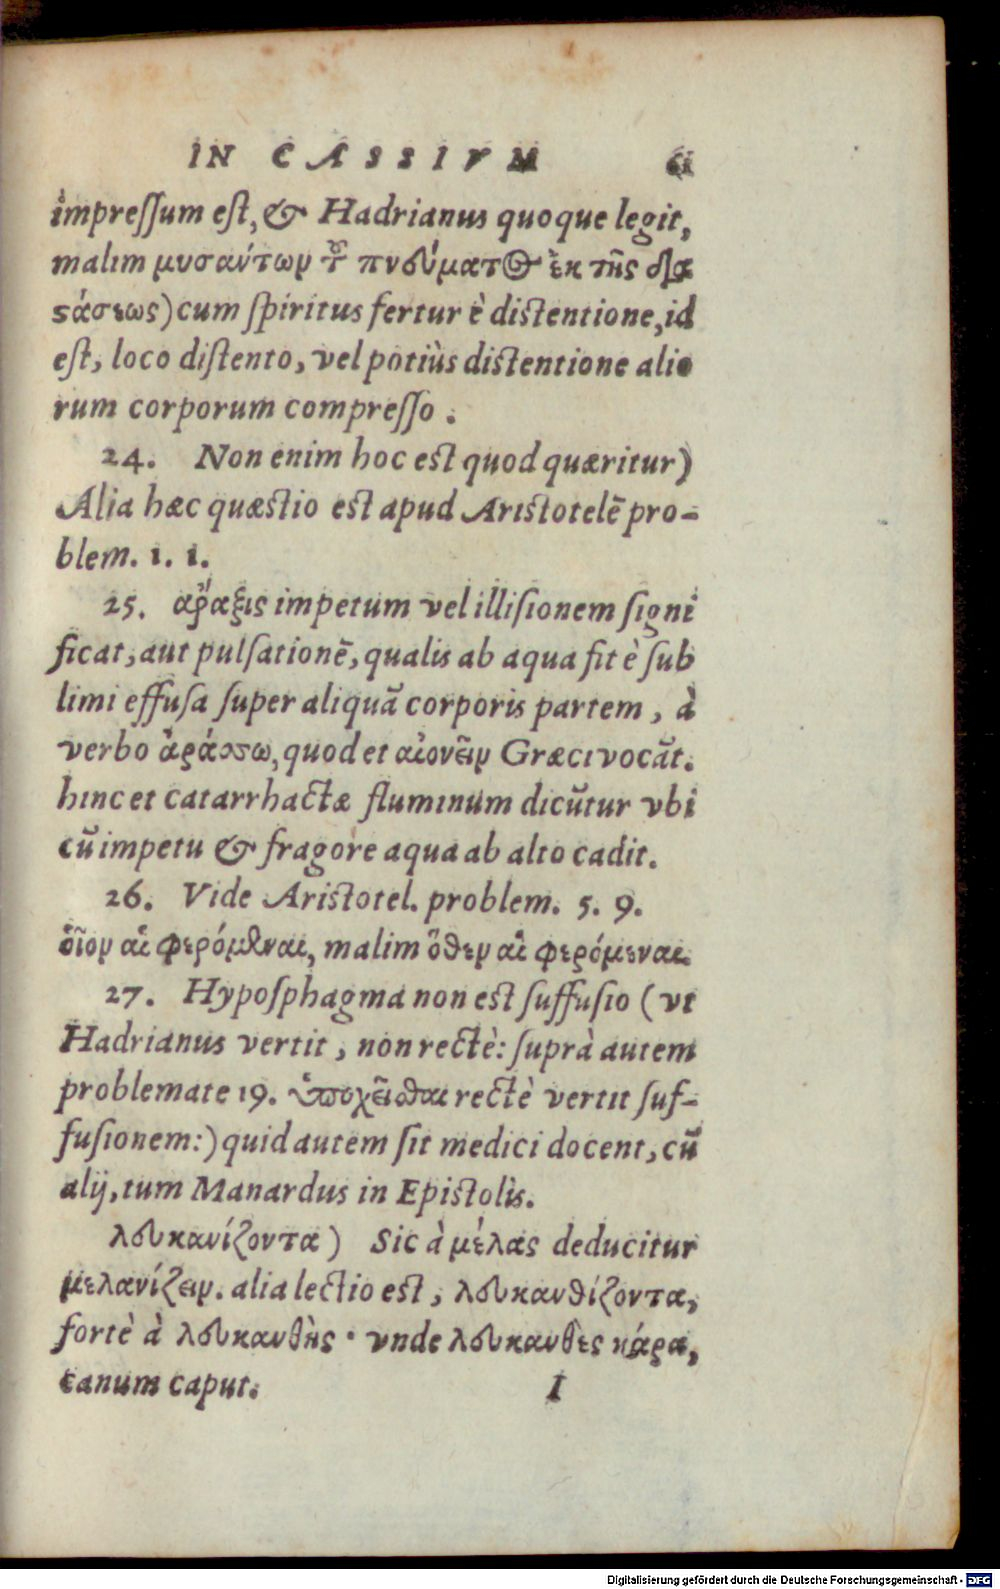 IN CASSIVM 61
impreſſum eſt, & Hadrianus quoque legit,
malim μυσαύτων τȣ͂ πνεύματος ἐκ τῆς δια
ϛάσεως) cum ſpiritus fertur è diſtentione, id
eſt, loco diſtento, vel potiùs diſtentione alio
rum corporum compreſſo.
24. Non enim hoc eſt quod quæritur)
Alia hæc quæſtio eſt apud Ariſtotelē pro-
blem. 1. 1.
25. αῤῥαξις impetum vel illiſionem ſigni
ficat, aut pulſationē, qualis ab aqua fit è ſub
limi effuſa ſuper aliquā corporis partem, à
verbo ἀράσσω, quod et αἰονεῖν Græci vocāt.
hinc et catarrhactæ fluminum dicūtur vbi
cū impetu & fragore aqua ab alto cadit.
26. Vide Ariſtotel. problem. 5. 9.
οἷον αἱ φερόμεναι, malim ὅθεν αἱ φερόμεναι.
27. Hypoſphagma non eſt ſuffuſio (vt
Hadrianus vertit, non rectè: ſuprà autem
problemate 19. ὑποχεῖσθαι rectè vertit ſuf-
fuſionem:) quid autem ſit medici docent, cū
alij, tum Manardus in Epiſtolis.
λευκανίζοντα) Sic à μέλας deducitur
μελανίζειν. alia lectio eſt, λευκανθίζοντα,
fortè à λευκανθὴς· vnde λευκανθὲς κάρα,
canum caput. I
Digitalisierung gefördert durch die Deutsche Forschungsgemeinschaft - DFG